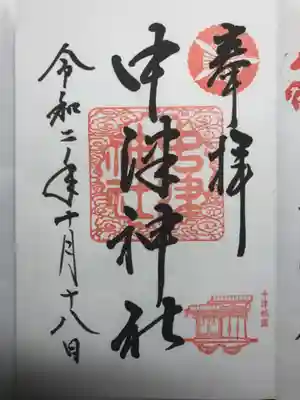 奉拝
中津神社
中津神社
令和二年十月十八日
中津祇園